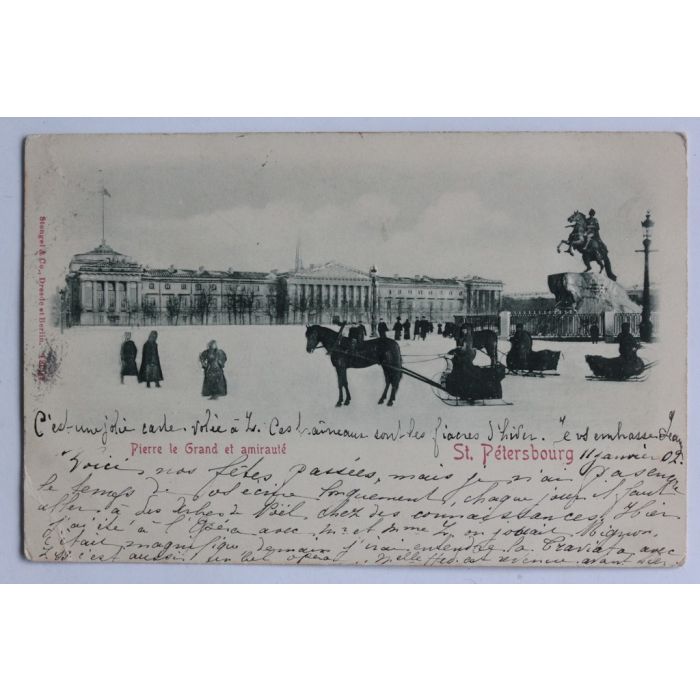 Stengel & Co., Dresde et Berlin.
C'est une jolie carte volée à L. Ces traîneaux sont les fiacres d'hiver. Je vs embrasse Jean
Pierre le Grand et amirauté
St. Pétersbourg 11 janvier 02.
Voici nos fêtes passées, mais je n'ai pas encore
le temps de vs écrire longuement, chaque jour il faut
aller à des Arbres de Noël chez des connaissances. Hier
j'ai été à l'Opéra avec Mr et Mme L, on jouait Mignon.
C'était magnifique demain j'irai entendre la Traviata avec
c'est aussi un bel opéra est revenue avant hier